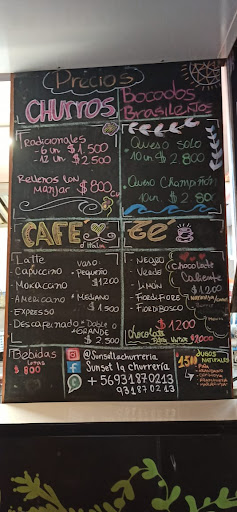 Precios
CHURROS
Tradicionales
- 6 un. $1.500
- 12 un. $2.500
Rellenos con
Manjar $800 c/u
Bocados
Brasileños
Queso solo
10 un. $2.800
Queso Champiñón
10 un. $2.800
CAFE
Latte
Capuccino
Mokaccino
Americano
Expresso
Descafeinado
Vaso
Pequeño
$1200
Mediano
$1.500
Doble o
GRANDE
$2.500
te
- NEGRO
- VERDE
- LIMÓN
- FIORDIFIORE
- FIORDIBOSCO
$1.200
Chocolate
Caliente
$1.200
Chocolate
$2000
Bebidas
Latas
$800
@Sunsetlachurreria
Sunset la churrería
+56931870213
931870213
1500
JUGOS
NATURALES